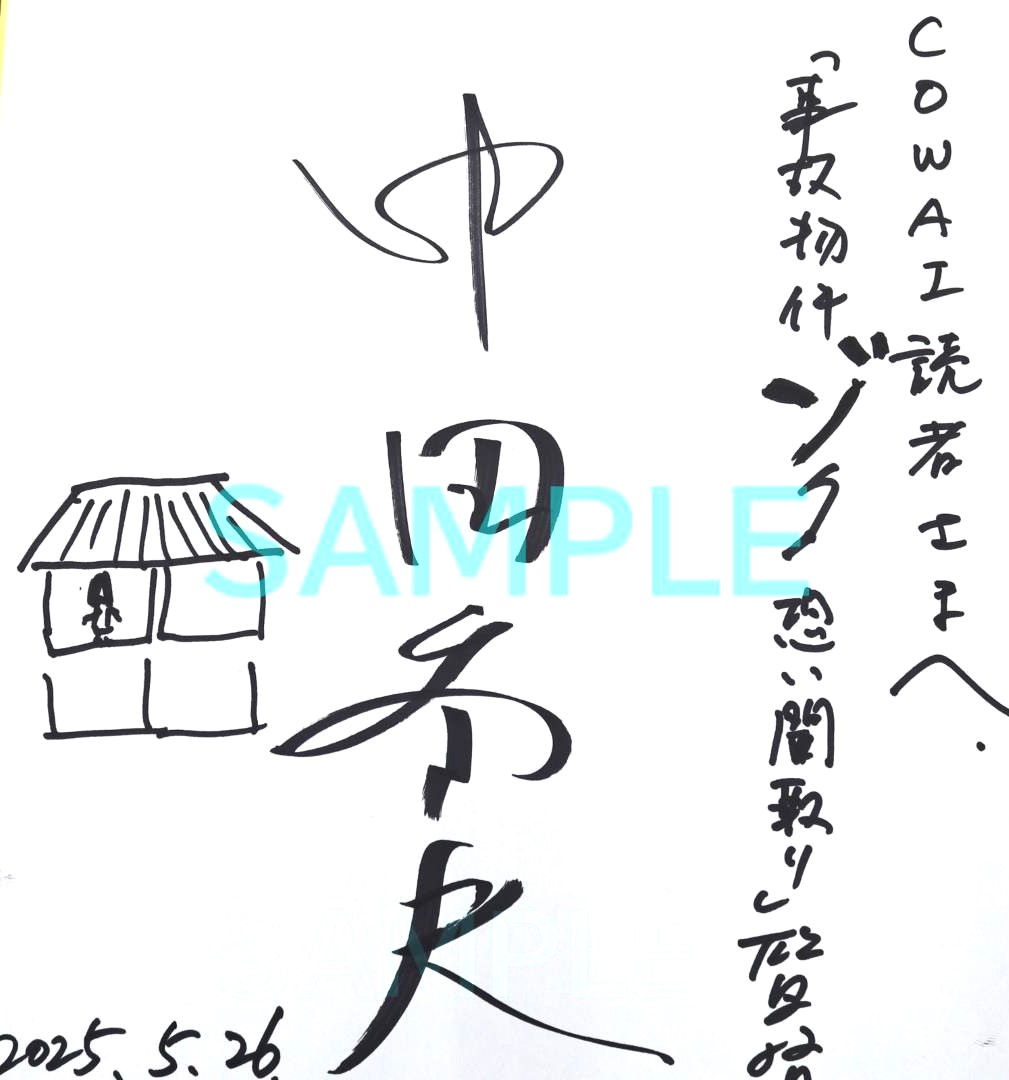 COWAI読者さまへ.
「事故物件ゾク恐い間取り」監督
中田秀夫
2025.5.26.
SAMPLE
SAMPLE